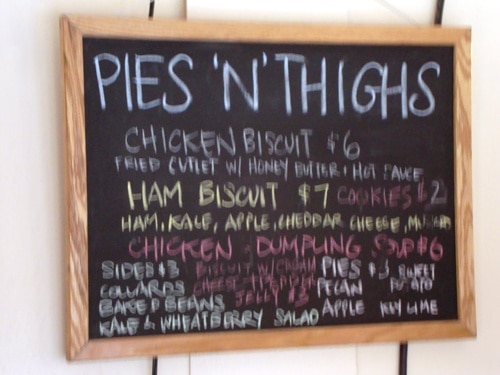 PIES 'N' THIGHS
CHICKEN BISCUIT $6
FRIED CUTLET W/ HONEY BUTTER + HOT SAUCE
HAM BISCUIT $7 COOKIES $2
HAM, KALE, APPLE, CHEDDAR CHEESE,
CHICKEN + DUMPLING SOUP $6
SIDES $3 BISCUIT W/ CREAM PIES $5 SWEET
COLLARDS CHEESE + PEPPER PECAN POTATO
BAKED BEANS JELLY $3 APPLE KEY LIME
KALE & WHEATBERRY SALAD